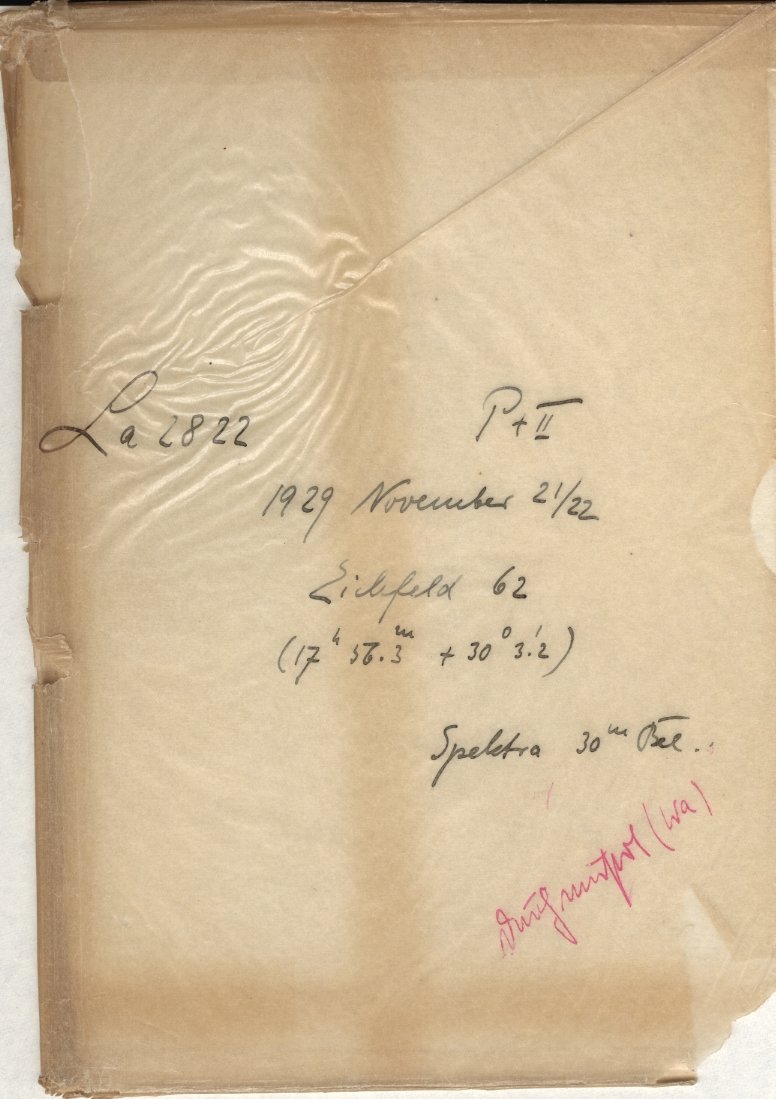 La 2822 P+II
1929 November 21/22
Eichfeld 62
(17ʰ 56.3ᵐ + 30° 3.'2)
Spektra 30ᵐ Bel.
durchgemustert (Wa)